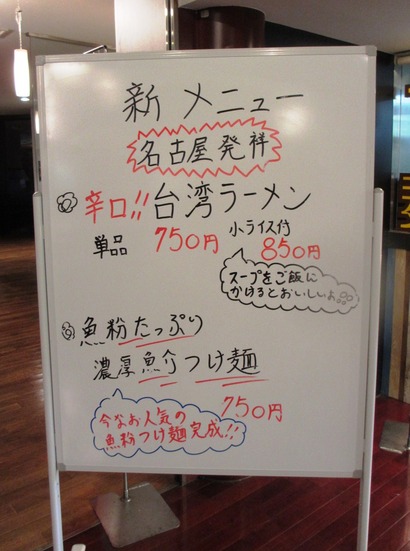 新メニュー
名古屋発祥
辛口!! 台湾ラーメン
単品 750円 小ライス付 850円
スープをご飯に
かけるとおいしいよ
魚粉たっぷり
濃厚魚介つけ麺
750円
今なお人気の
魚粉つけ麺完成!!